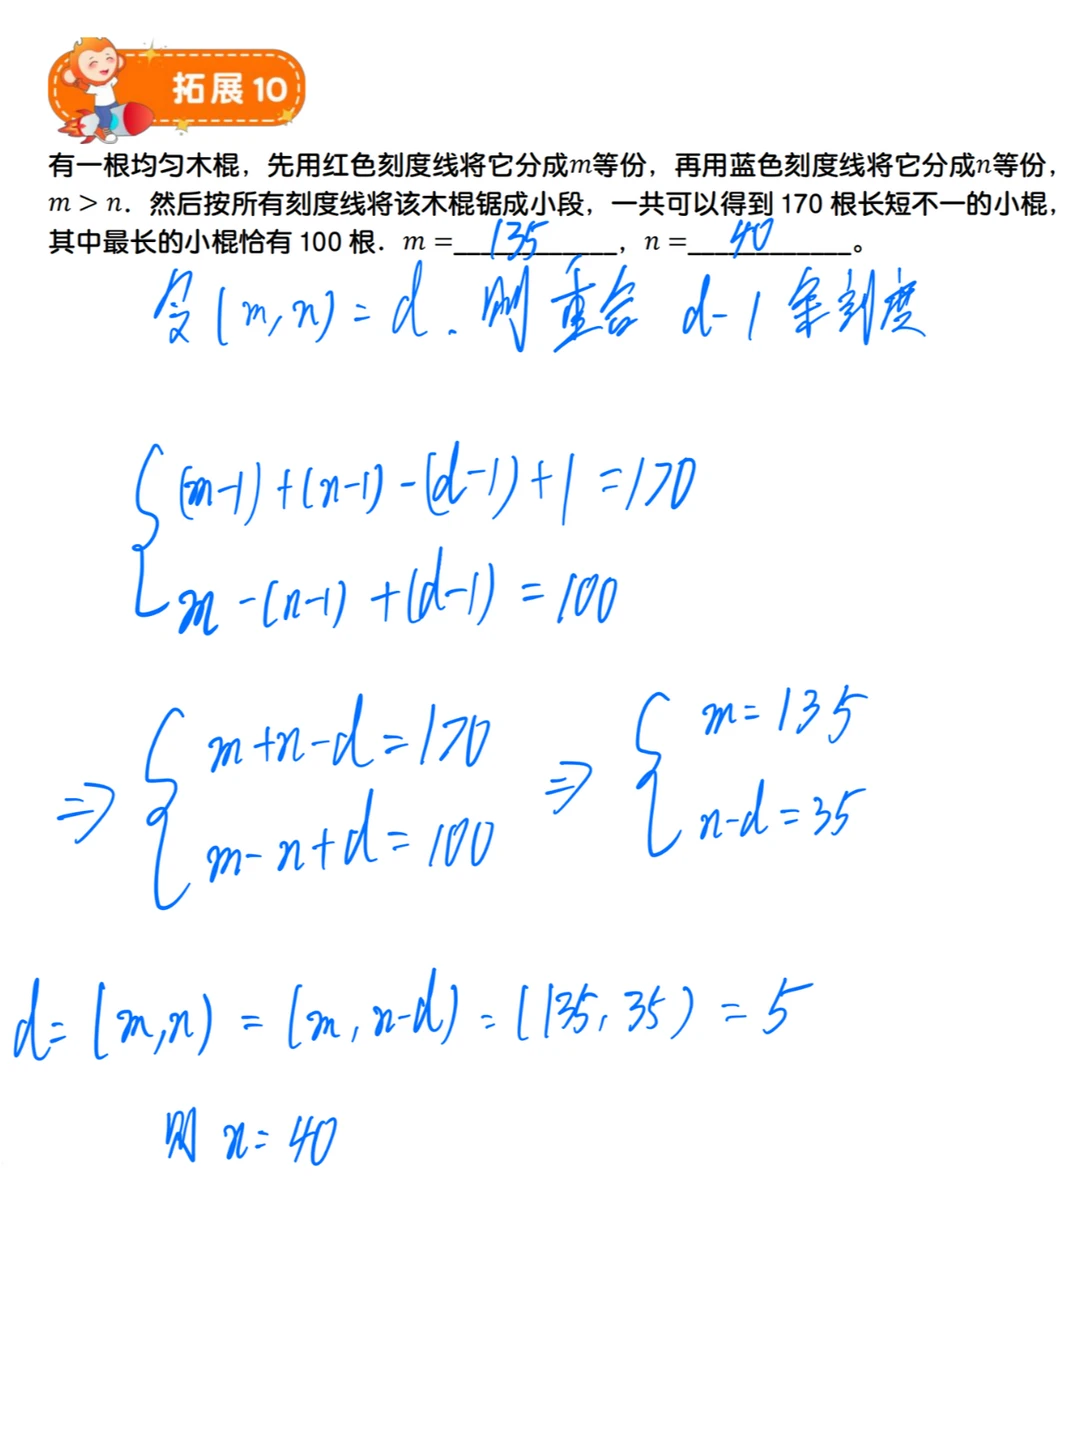 拓展 10
有一根均匀木棍，先用红色刻度线将它分成m等份，再用蓝色刻度线将它分成n等份，
m > n．然后按所有刻度线将该木棍锯成小段，一共可以得到 170 根长短不一的小棍，
其中最长的小棍恰有 100 根．m =____135____，n =____40____。
令 (m,n) = d . 则重合 d-1 条刻度
(m-1)+(n-1)-(d-1)+1=170
m-(n-1)+(d-1)=100
⇒ m+n-d=170 ⇒ m=135
m-n+d=100 n-d=35
d=(m,n)=(m,n-d)=(135,35)=5
则 n=40